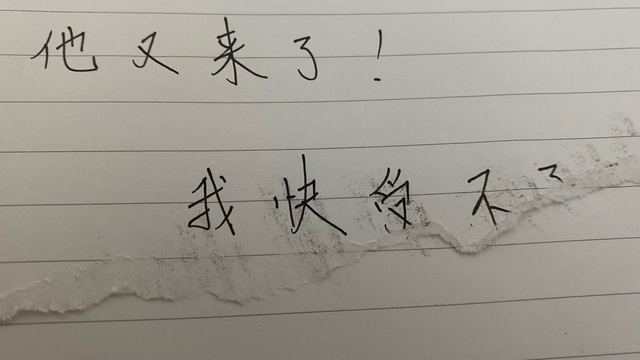 他又来了！
我快受不